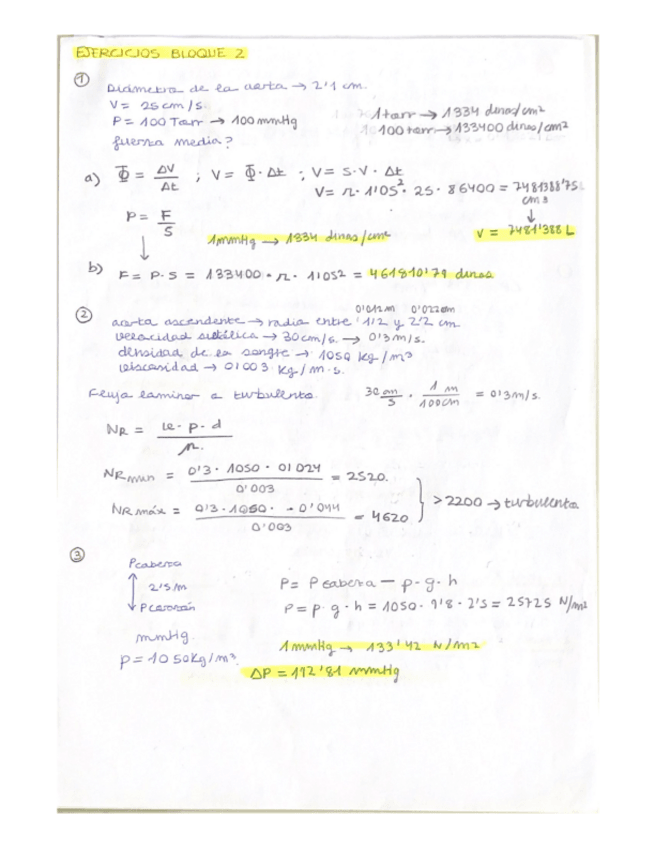 EJERCICIOS BLOQUE 2
①
Diámetro de la aorta → 2'1 cm.
V = 25 cm/s.
P = 100 Torr → 100 mmHg
fuerza media?
1 torr → 1334 dinas/cm²
100 torr → 133400 dinas/cm²
a) Φ = ΔV/Δt ; V = Φ · Δt ; V = S·V·Δt
V = π · 1'05² · 25 · 86400 = 7481388'75
cm³
↓
V = 7481'388 L
P = F/S
↓
1mmHg → 1334 dinas/cm²
b) F = P·S = 133400 · π · 1'05² = 461810'79 dinas
②
0'012m 0'022m
aorta ascendente → radio entre 1'2 y 2'2 cm.
velocidad sistólica → 30 cm/s. → 0'3 m/s.
densidad de la sangre → 1050 kg/m³
viscosidad → 0'003 kg/m·s.
Flujo laminar o turbulento.
30 cm/s · 1 m/100cm = 0'3 m/s.
NR = v · p · d / n.
NRmin = 0'3 · 1050 · 0'024 / 0'003 = 2520.
NR máx = 0'3 · 1050 · 0'044 / 0'003 = 4620
} > 2200 → turbulento
③
Pcabeza
↕ 2'5 m
Pcorazón
mmHg.
p = 1050 kg/m³.
P = Pcabeza − p·g·h
P = p·g·h = 1050 · 9'8 · 2'5 = 25725 N/m²
1mmHg → 133'42 N/m²
ΔP = 192'81 mmHg